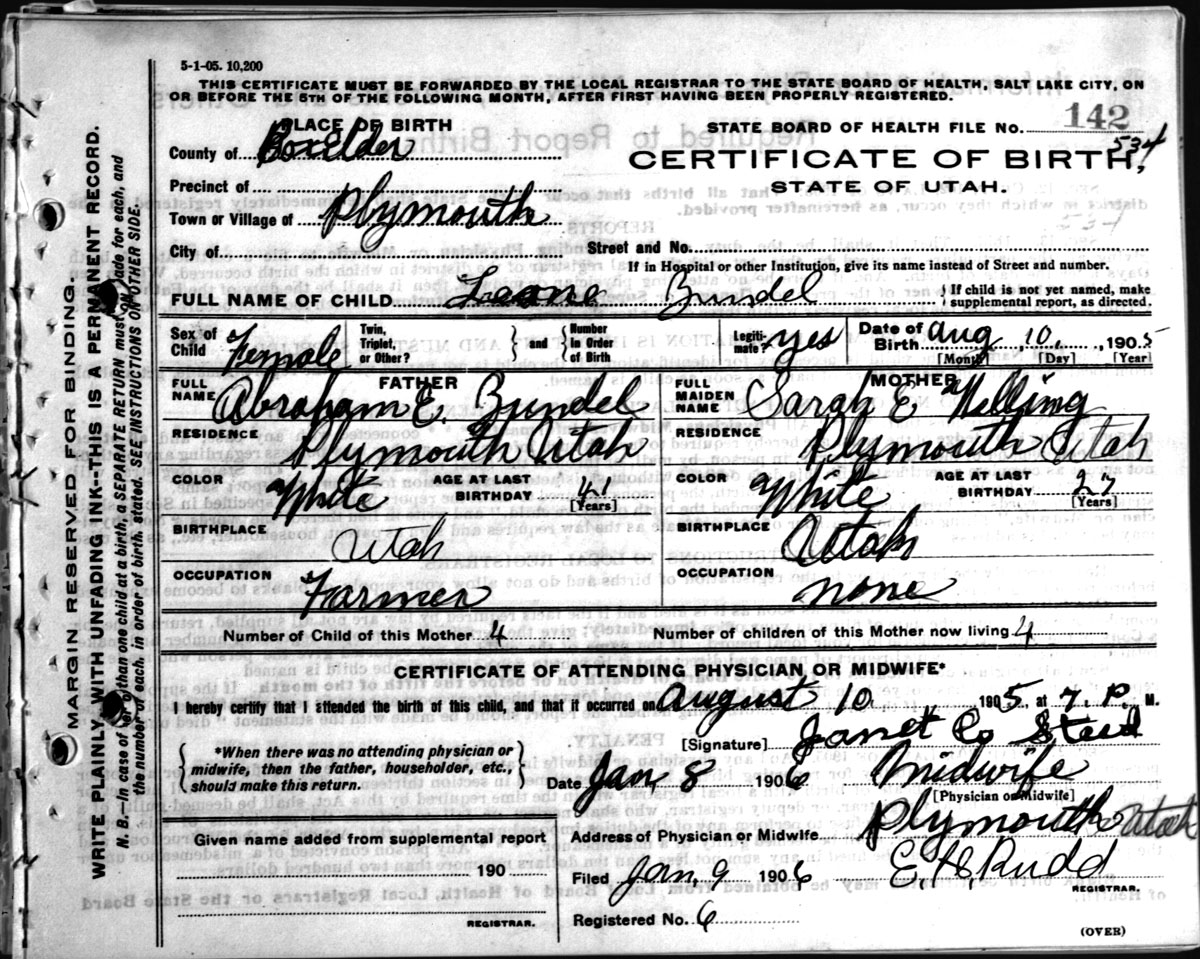 5-1-05. 10,200
THIS CERTIFICATE MUST BE FORWARDED BY THE LOCAL REGISTRAR TO THE STATE BOARD OF HEALTH, SALT LAKE CITY, ON
OR BEFORE THE 5TH OF THE FOLLOWING MONTH, AFTER FIRST HAVING BEEN PROPERLY REGISTERED.
PLACE OF BIRTH
STATE BOARD OF HEALTH FILE No. 142
534
County of Boxelder
CERTIFICATE OF BIRTH,
Precinct of
STATE OF UTAH.
Town or Village of Plymouth
534
City of
Street and No.
If in Hospital or other Institution, give its name instead of Street and number.
FULL NAME OF CHILD Leone Zundel
If child is not yet named, make
supplemental report, as directed.
Sex of Child Female
Twin, Triplet, or Other?
and
Number in Order of Birth
Legitimate? yes
Date of Birth Aug 10, 1905
[Month] [Day] [Year]
FATHER
FULL NAME Abraham E. Zundel
RESIDENCE Plymouth Utah
COLOR White
AGE AT LAST BIRTHDAY 41
[Years]
BIRTHPLACE Utah
OCCUPATION Farmer
MOTHER
FULL MAIDEN NAME Sarah E Welling
RESIDENCE Plymouth Utah
COLOR White
AGE AT LAST BIRTHDAY 27
[Years]
BIRTHPLACE Utah
OCCUPATION none
Number of Child of this Mother 4
Number of children of this Mother now living 4
CERTIFICATE OF ATTENDING PHYSICIAN OR MIDWIFE*
I hereby certify that I attended the birth of this child, and that it occurred on August 10 1905, at 7. P. M.
*When there was no attending physician or
midwife, then the father, householder, etc.,
should make this return.
[Signature] Janet C Steed
Date Jan 8 1906 Midwife
[Physician or Midwife]
Given name added from supplemental report
190
REGISTRAR.
Address of Physician or Midwife Plymouth Utah
Filed Jan, 9 1906 E, H, Rudd
REGISTRAR.
Registered No. 6
(OVER)
MARGIN RESERVED FOR BINDING.
WRITE PLAINLY, WITH UNFADING INK--THIS IS A PERMANENT RECORD.
N. B.—In case of more than one child at a birth, a SEPARATE RETURN must be made for each, and
the number of each, in order of birth, stated. SEE INSTRUCTIONS ON OTHER SIDE.